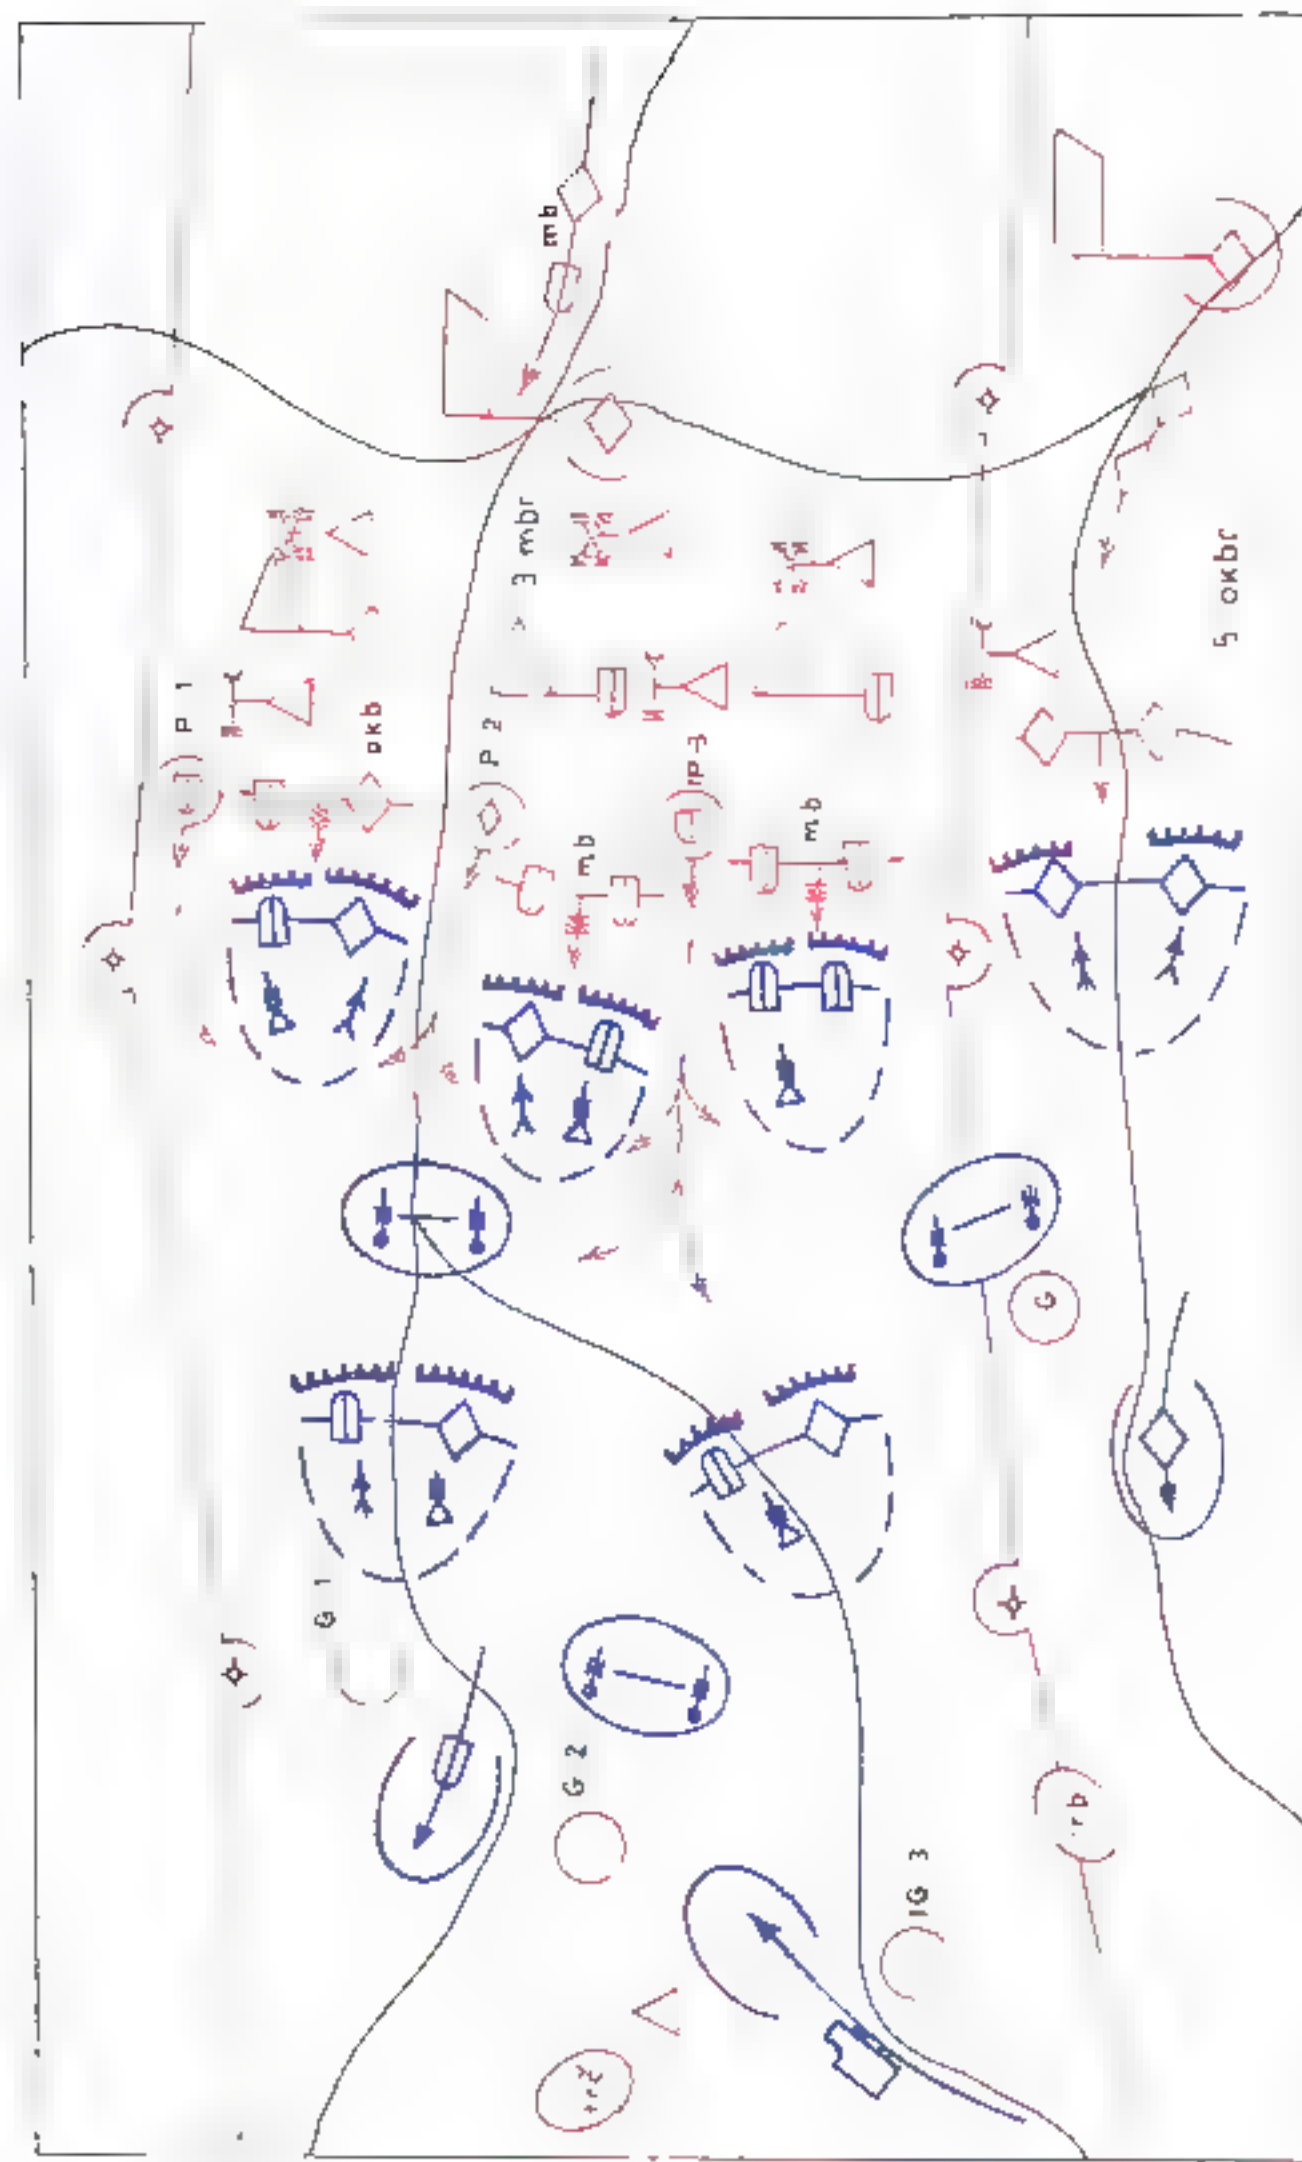 mb
3 mbr
5 okbr
P 1
okb
P 2
P 3
mb
mb
G
G 1
G 2
rb
G 3